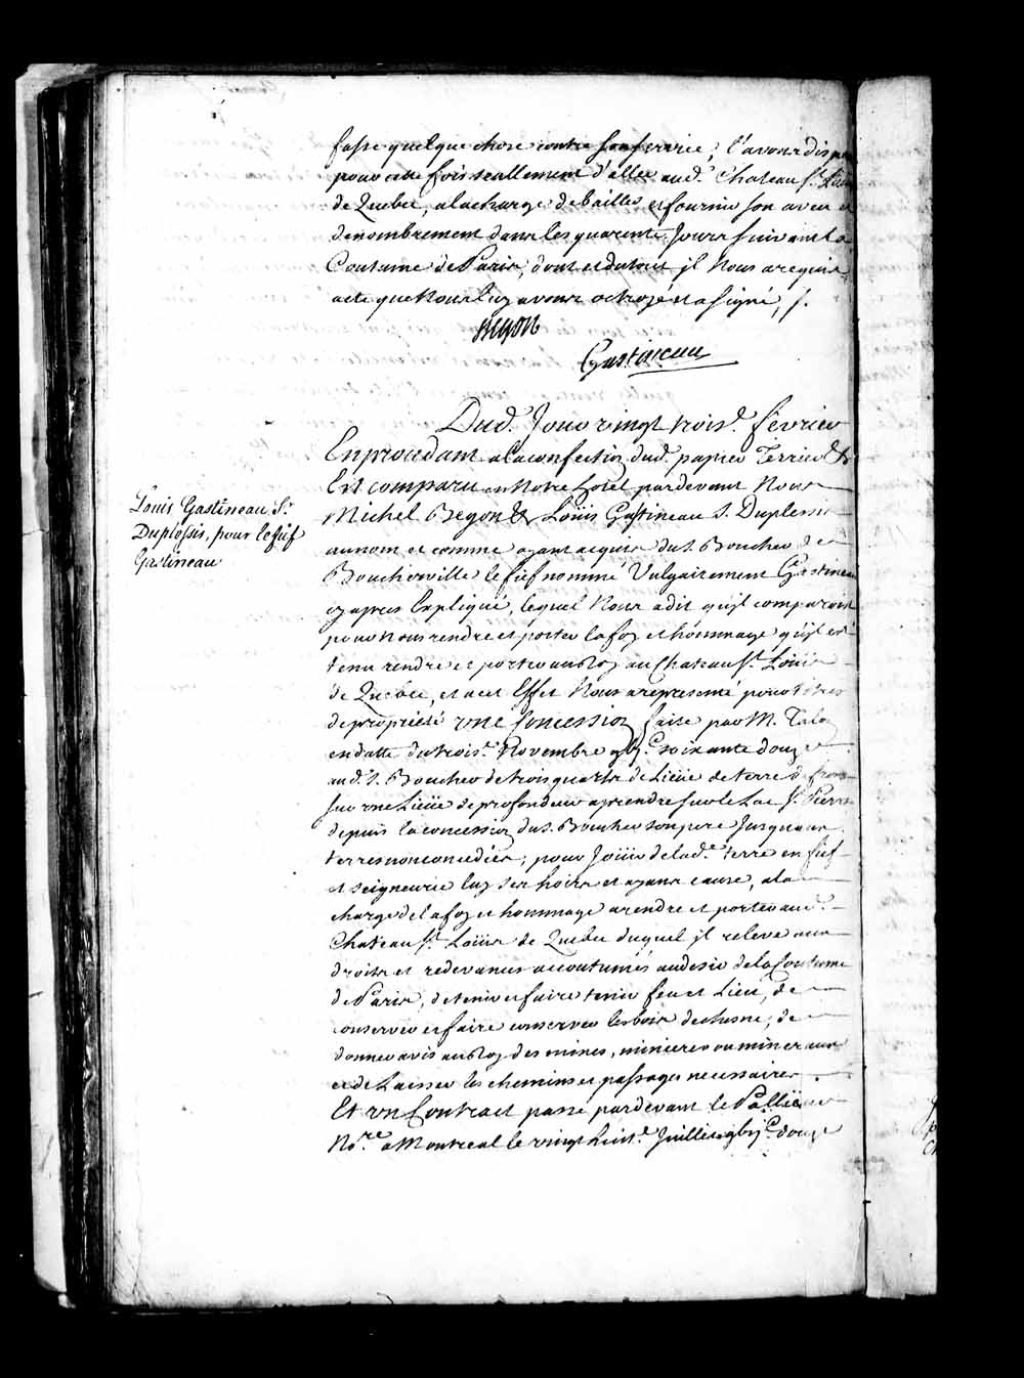 fasse quelque chose contre son service, l'avons dispen
pour cette fois seullement d'aller aud. Chateau St. Louis
de Quebec, a la charge de bailler et fournir son aveu et
denombrement dans les quarente Jours suivant la
Coutume de Paris, dont et du tout il Nous a requis
acte que Nous luy avons octroyé et a signé, /.
Begon
Gastineau
Dud. Jour vingt trois.e fevrier
En procedant a la confection dud. papier Terrier &
Est comparu en Notre hotel pardevant Nous
Michel Begon & Loüis Gastineau S. Duplessis
Louis Gastineau Sr.
Duplessis, pour le fief
Gastineau
au nom et comme ayant acquis du S. Boucher de
Boucherville le fief nommé Vulgairement Gastineau
cy apres Expliqué, lequel Nous a dit qu'jl comparoist
pour nous rendre et porter la foy et hommage qu'jl est
tenu rendre et porter au Roy au Chateau St. Loüis
de Quebec, et a cet Effet Nous a representé pour titres
de propriété une Concession faite par M. Talon
en datte du trois.e Novembre gbj.c soixante douze
aud. S. Boucher de trois quarts de Lieüe de terre de front
sur une Lieüe de profondeur a prendre sur le Lac St. Pierre
depuis la concession du S. Boucher son pere Jusqu'aux
terres non concedées; pour Joüir de lad.e terre en fief
et seigneurie luy ses hoirs et ayans cause, a la
charge de la foy et hommage a rendre et porter aud.
Chateau St. Loüis de Quebec duquel jl releve aux
droits et redevances accoutumés au desir de la Coutume
de Paris, de tenir et faire tenir feu et Lieu, de
conserver et faire conserver les bois de chesne, de
donner avis au Roy des mines, minieres ou mineraux
et de Laisser les chemins et passages necessaires.
Et un Contract passé pardevant le Pallieur
No.re a Montreal le vingt huit.e Juillet gbij.c douze